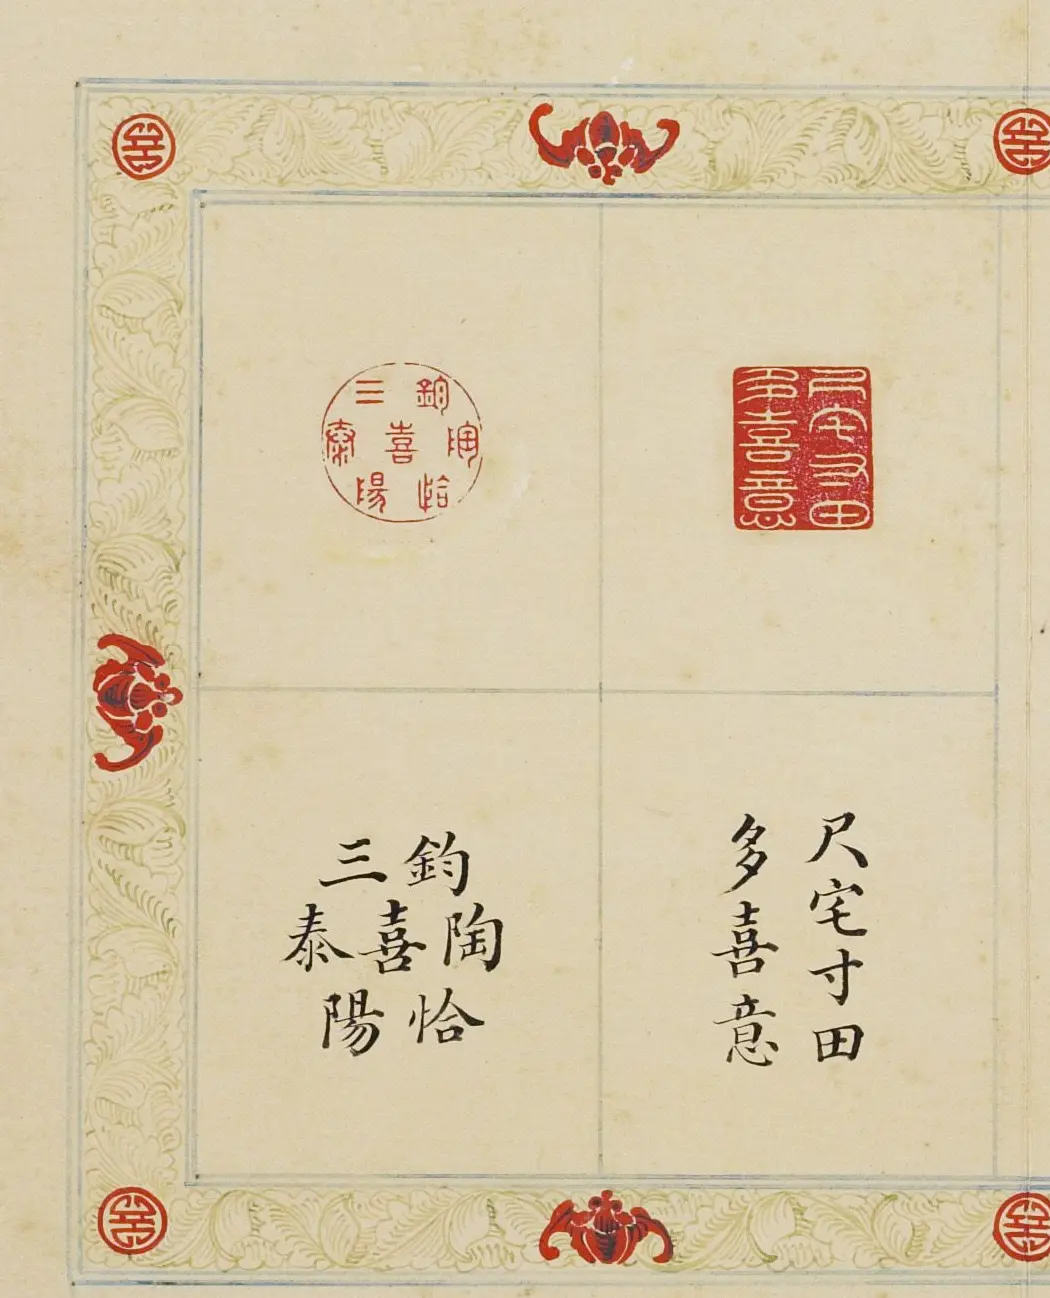 尺宅寸田
多喜意
鈞陶恰
喜
三泰陽
尺宅寸田
多喜意
鈞陶恰
喜
三泰陽